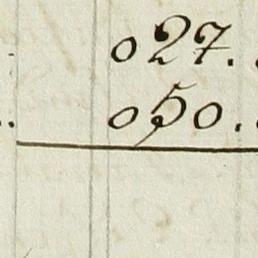 027.
050.